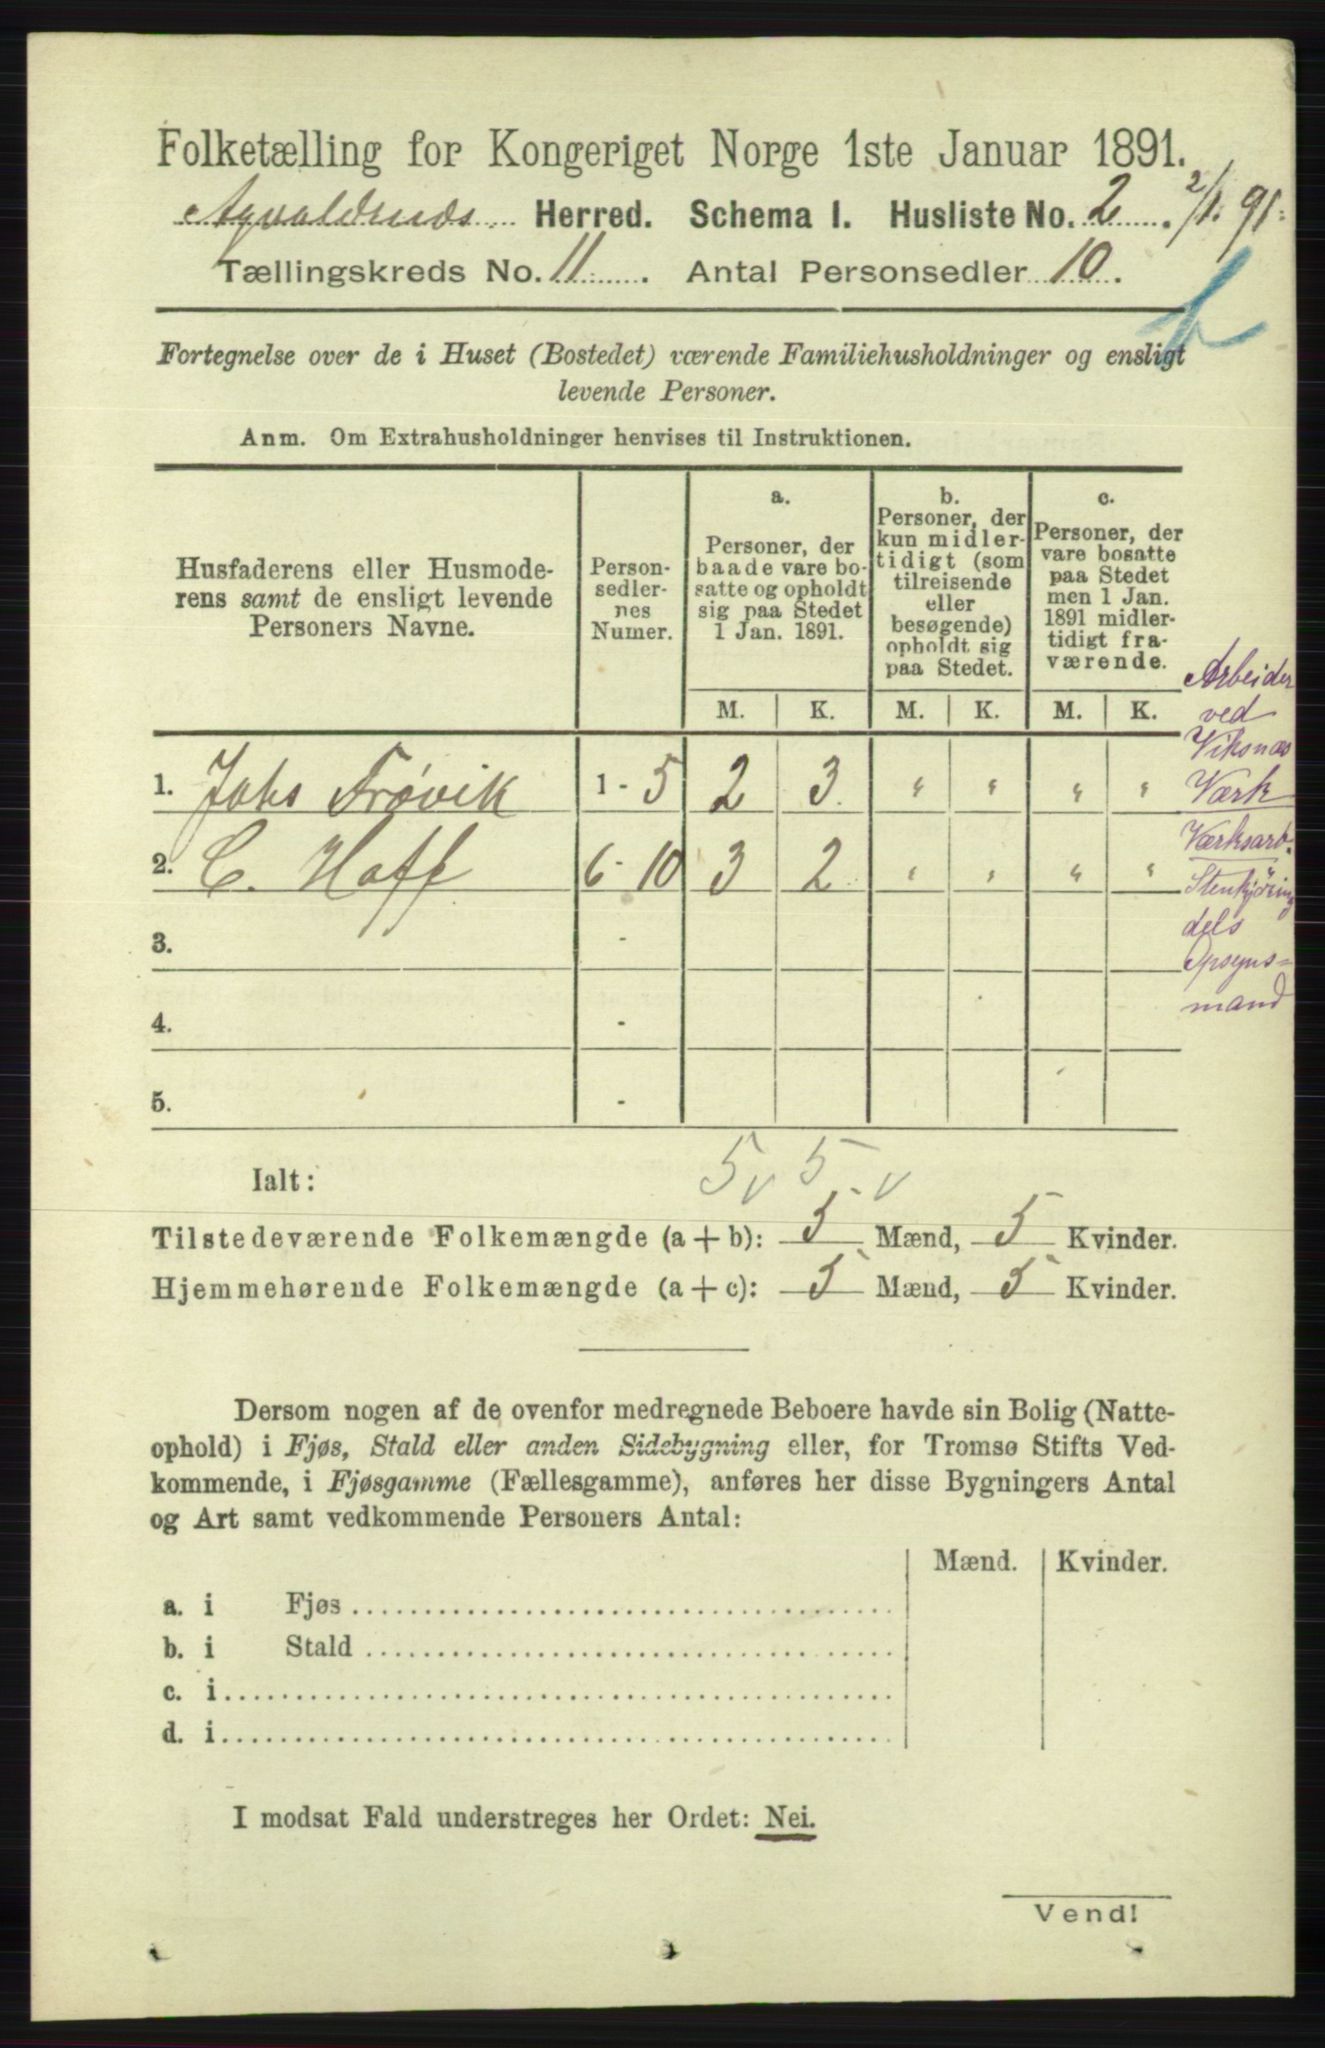 Folketælling for Kongeriget Norge 1ste Januar 1891.
Herred. Schema I. Husliste No. 2. 2/1. 91.
Tællingskreds No. 11. Antal Personsedler 10.
Fortegnelse over de i Huset (Bostedet) værende Familiehusholdninger og ensligt
levende Personer.
Anm. Om Extrahusholdninger henvises til Instruktionen.
Husfaderens eller Husmode-
rens samt de ensligt levende
Personers Navne.
Person-
sedler-
nes
Numer.
a.
Personer, der
baade vare bo-
satte og opholdt
sig paa Stedet
1 Jan. 1891.
b.
Personer, der
kun midler-
tidigt (som
tilreisende
eller
besøgende)
opholdt sig
paa Stedet.
c.
Personer, der
vare bosatte
paa Stedet
men 1 Jan.
1891 midler-
tidigt fra-
værende.
M. K. M. K. M. K.
Arbeider
ved
Viksnæs
Værk
1. Johs Frøvik 1 - 5 2 3 " " " "
Værksarb.
2. C. Hoff 6 - 10 3 2 " " " "
Stenkjöring
dels
Opsyns-
mand
3. -
4. -
5. -
Ialt: 5 v 5 v
Tilstedeværende Folkemængde (a + b): 5 Mænd, 5 Kvinder.
Hjemmehørende Folkemængde (a + c): 5 Mænd, 5 Kvinder.
Dersom nogen af de ovenfor medregnede Beboere havde sin Bolig (Natte-
ophold) i Fjøs, Stald eller anden Sidebygning eller, for Tromsø Stifts Ved-
kommende, i Fjøsgamme (Fællesgamme), anføres her disse Bygningers Antal
og Art samt vedkommende Personers Antal:
Mænd. Kvinder.
a. i Fjøs
b. i Stald
c. i
d. i
I modsat Fald understreges her Ordet: Nei.
Vend!